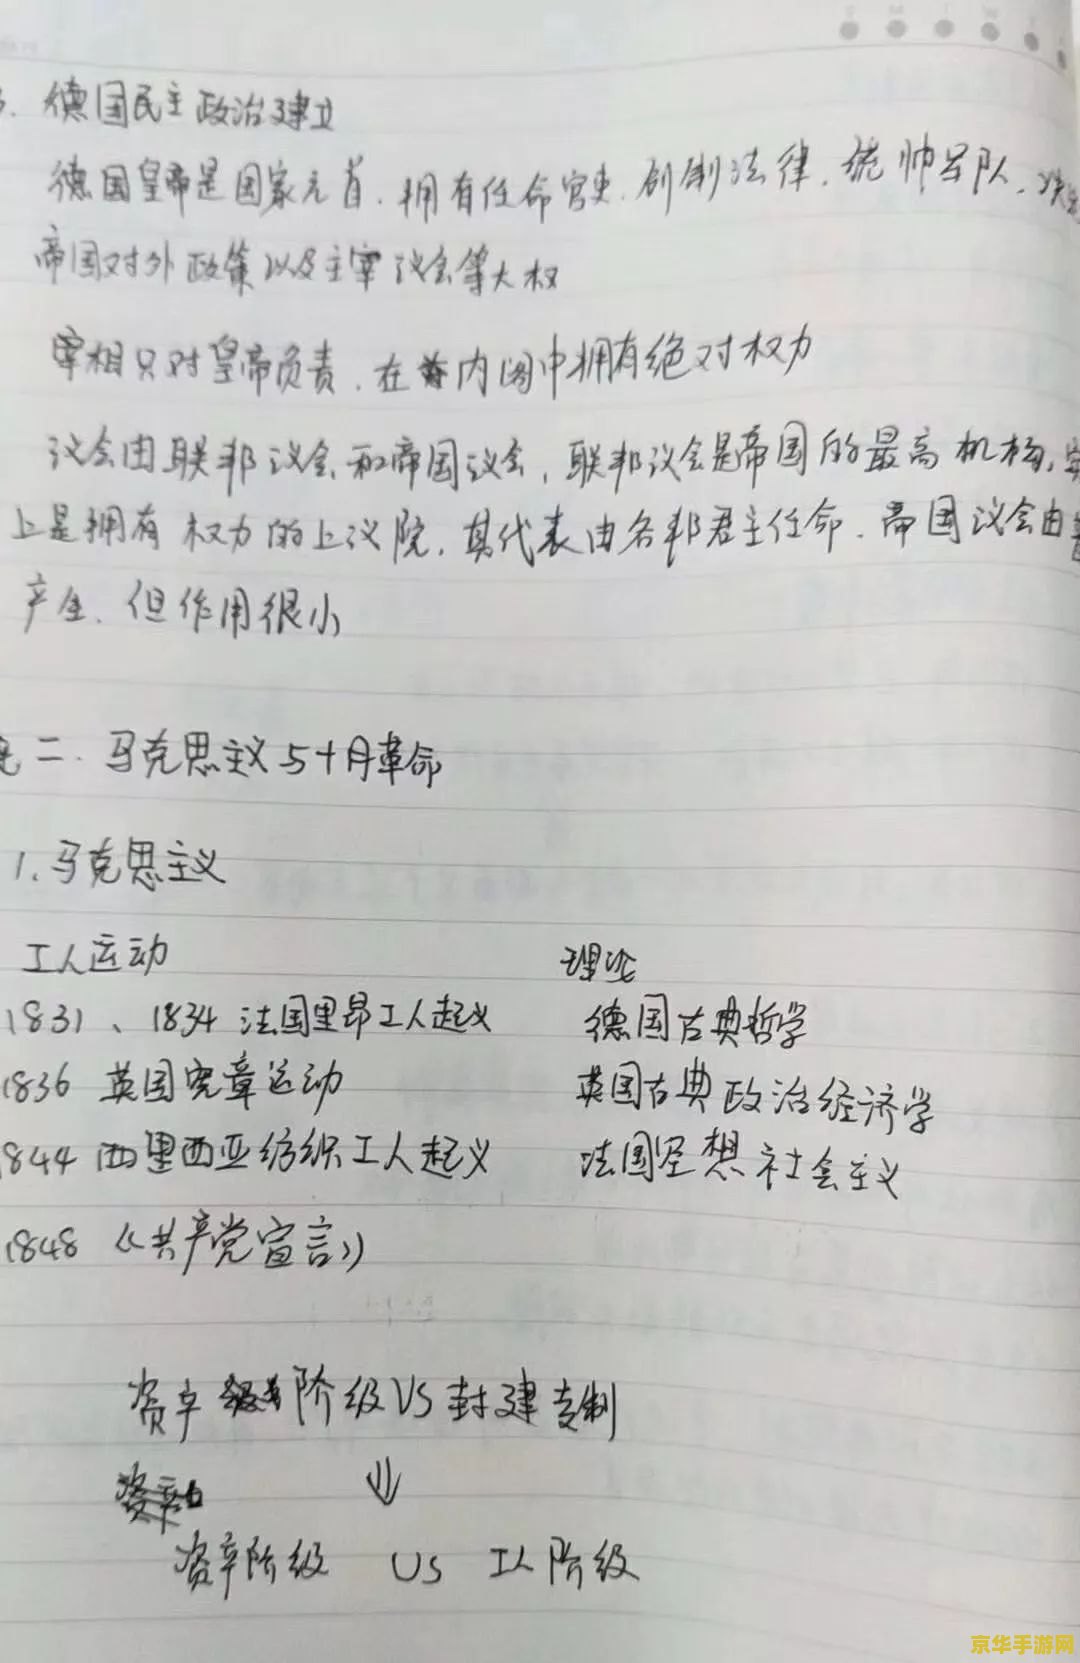 德国民主政治建立
德国皇帝是国家元首,拥有任命官吏,创制法律,统帅军队,决定
帝国对外政策以及主宰议会等大权
宰相只对皇帝负责,在内阁中拥有绝对权力
议会由联邦议会和帝国议会,联邦议会是帝国的最高机构,实
上是拥有权力的上议院,其代表由各邦君主任命.帝国议会由普
产生,但作用很小
二.马克思主义与十月革命
1.马克思主义
工人运动 理论
1831、1834 法国里昂工人起义 德国古典哲学
1836 英国宪章运动 英国古典政治经济学
1844 西里西亚纺织工人起义 法国空想社会主义
1848 《共产党宣言》
资产阶级VS封建专制
⇓
资产阶级 VS 工人阶级
京华手游网